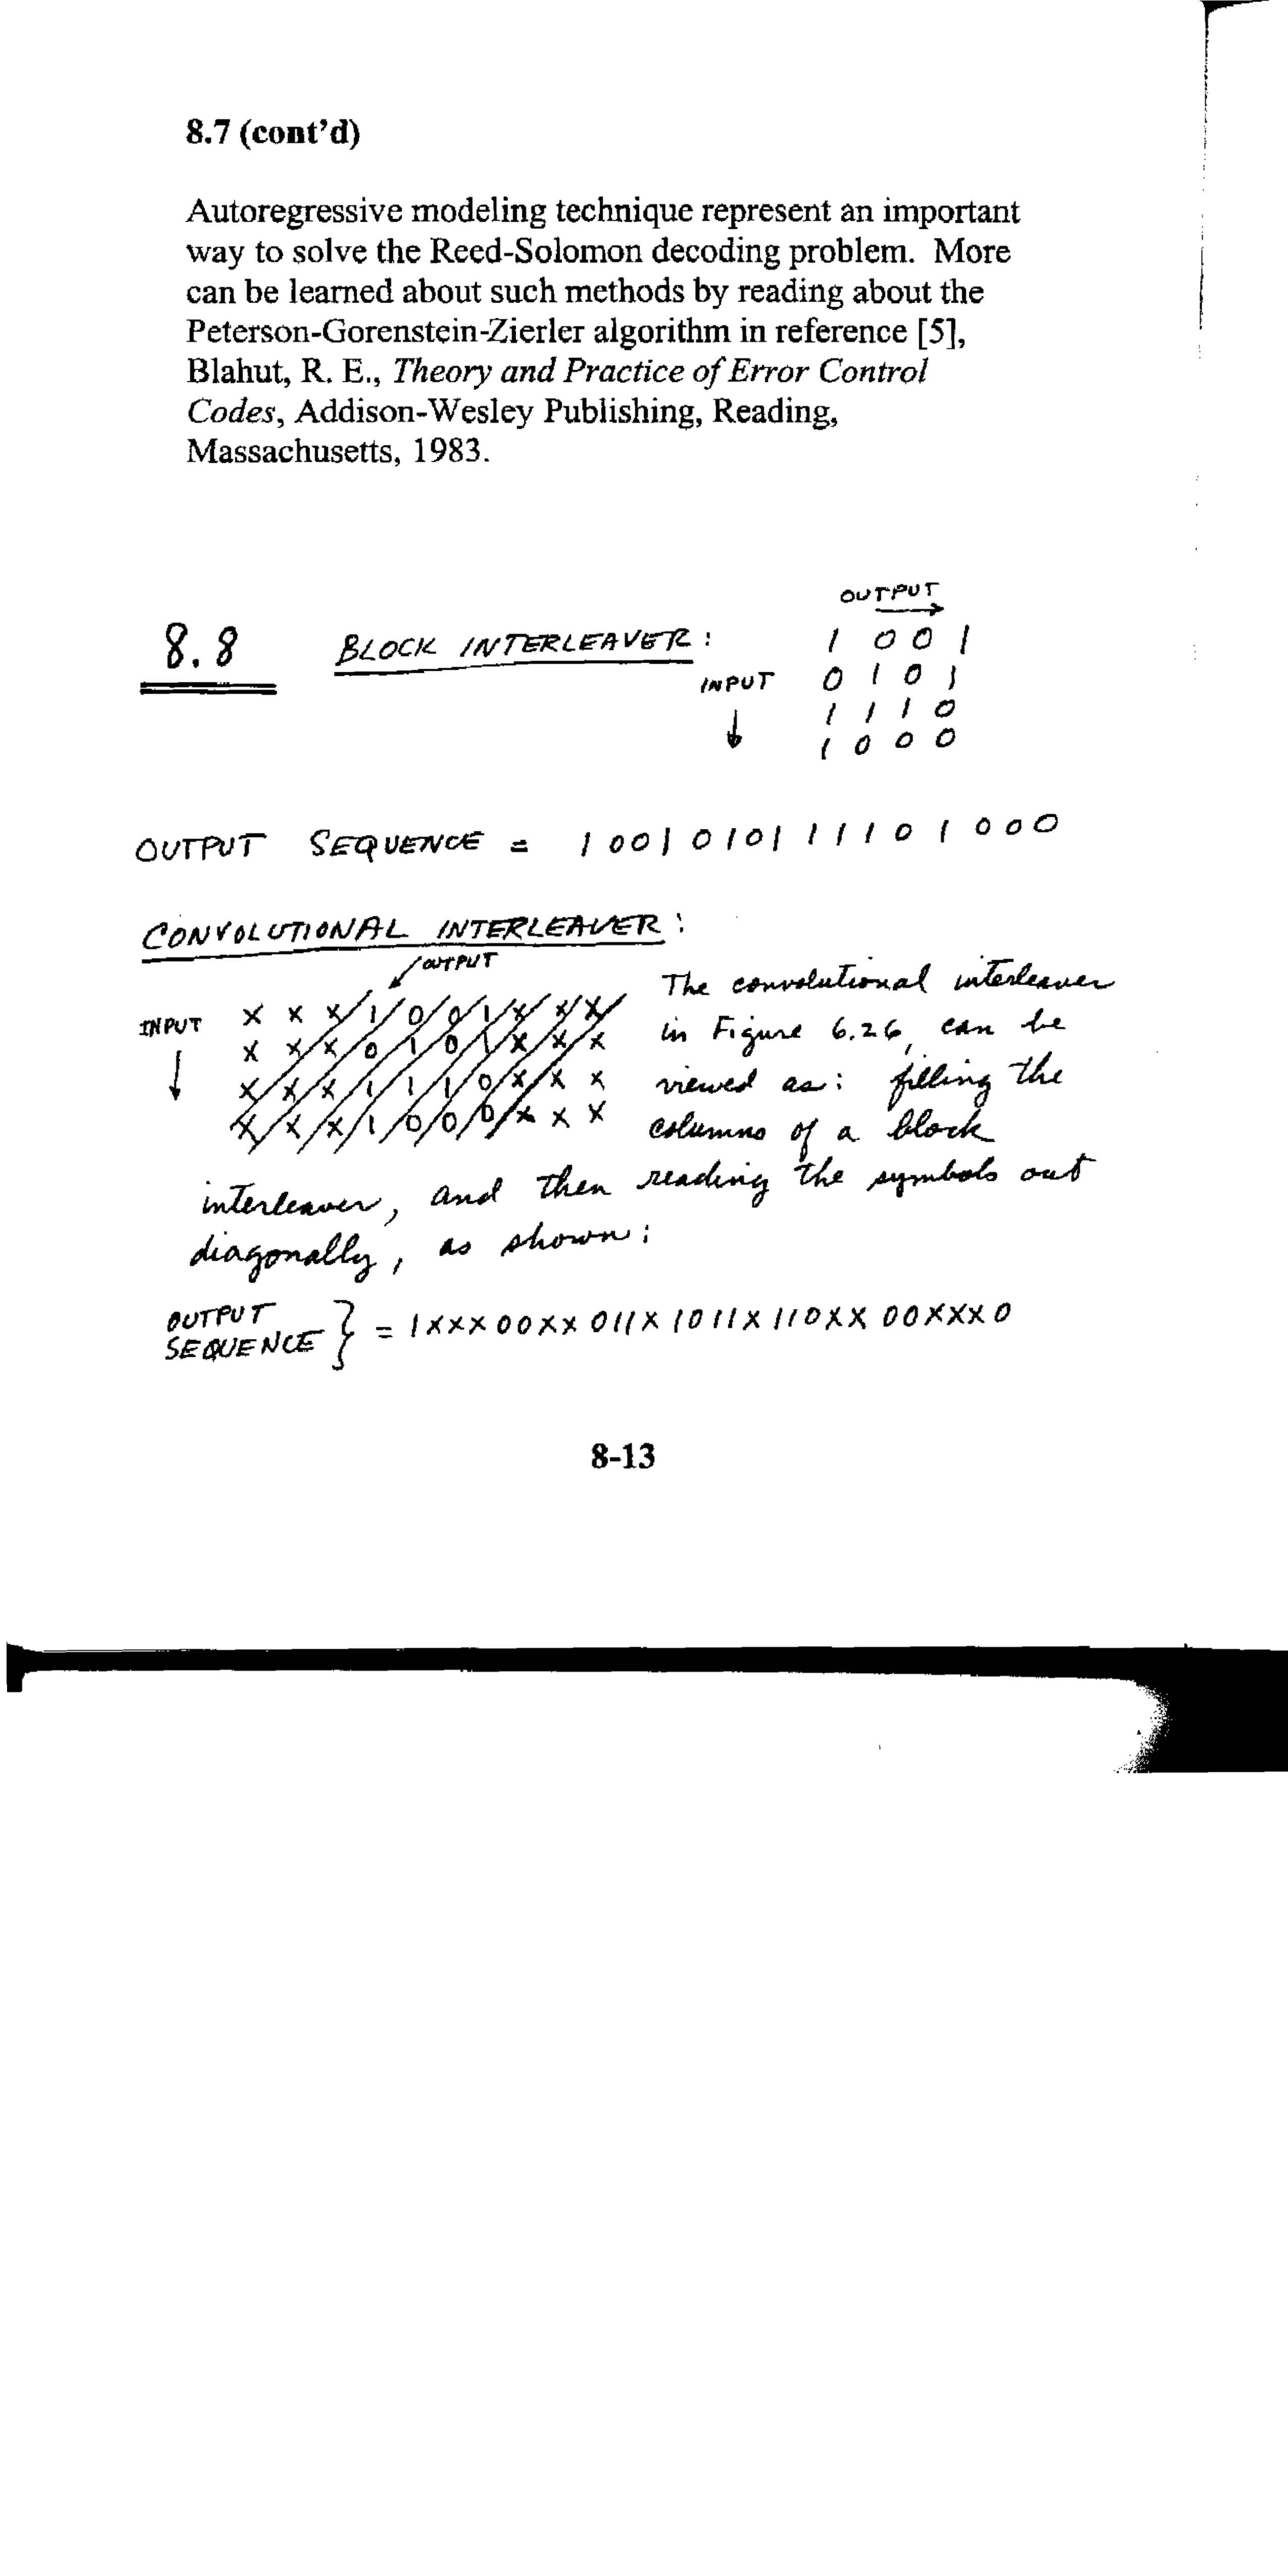 8.7 (cont'd)
Autoregressive modeling technique represent an important
way to solve the Reed-Solomon decoding problem. More
can be learned about such methods by reading about the
Peterson-Gorenstein-Zierler algorithm in reference [5],
Blahut, R. E., Theory and Practice of Error Control
Codes, Addison-Wesley Publishing, Reading,
Massachusetts, 1983.
OUTPUT
8.8 BLOCK INTERLEAVER : 1 0 0 1
INPUT 0 1 0 1
1 1 1 0
1 0 0 0
OUTPUT SEQUENCE = 1 0 0 1 0 1 0 1 1 1 1 0 1 0 0 0
CONVOLUTIONAL INTERLEAVER :
OUTPUT
INPUT X X X 1 0 0 1 X X X
X X X 0 1 0 1 X X X
X X X 1 1 1 0 X X X
X X X 1 0 0 0 X X X
The convolutional interleaver
in Figure 6.26, can be
viewed as: filling the
columns of a block
interleaver, and then reading the symbols out
diagonally, as shown:
OUTPUT
SEQUENCE } = 1XXX 00XX 011X 1011X 110XX 00XXX 0
8-13